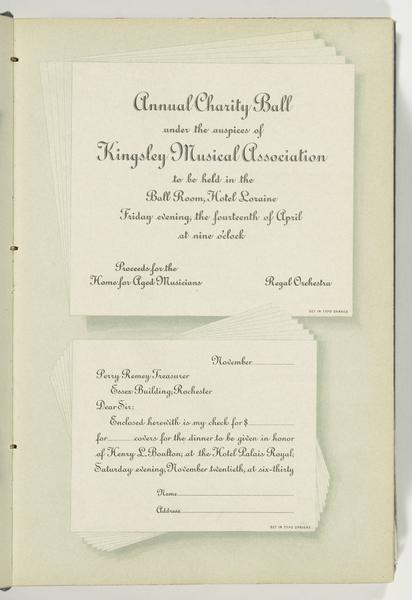 Annual Charity Ball
under the auspices of
Kingsley Musical Association
to be held in the
Ball Room, Hotel Loraine
Friday evening, the fourteenth of April
at nine o'clock
Proceeds for the
Home for Aged Musicians
Regal Orchestra
SET IN TYPO UPRIGHT
November
Perry Remey-Treasurer
Essex Building, Rochester
Dear Sir:
Enclosed herewith is my check for $
for covers for the dinner to be given in honor
of Henry L. Boulton, at the Hotel Palais Royal,
Saturday evening, November twentieth, at six-thirty
Name
Address
SET IN TYPO UPRIGHT